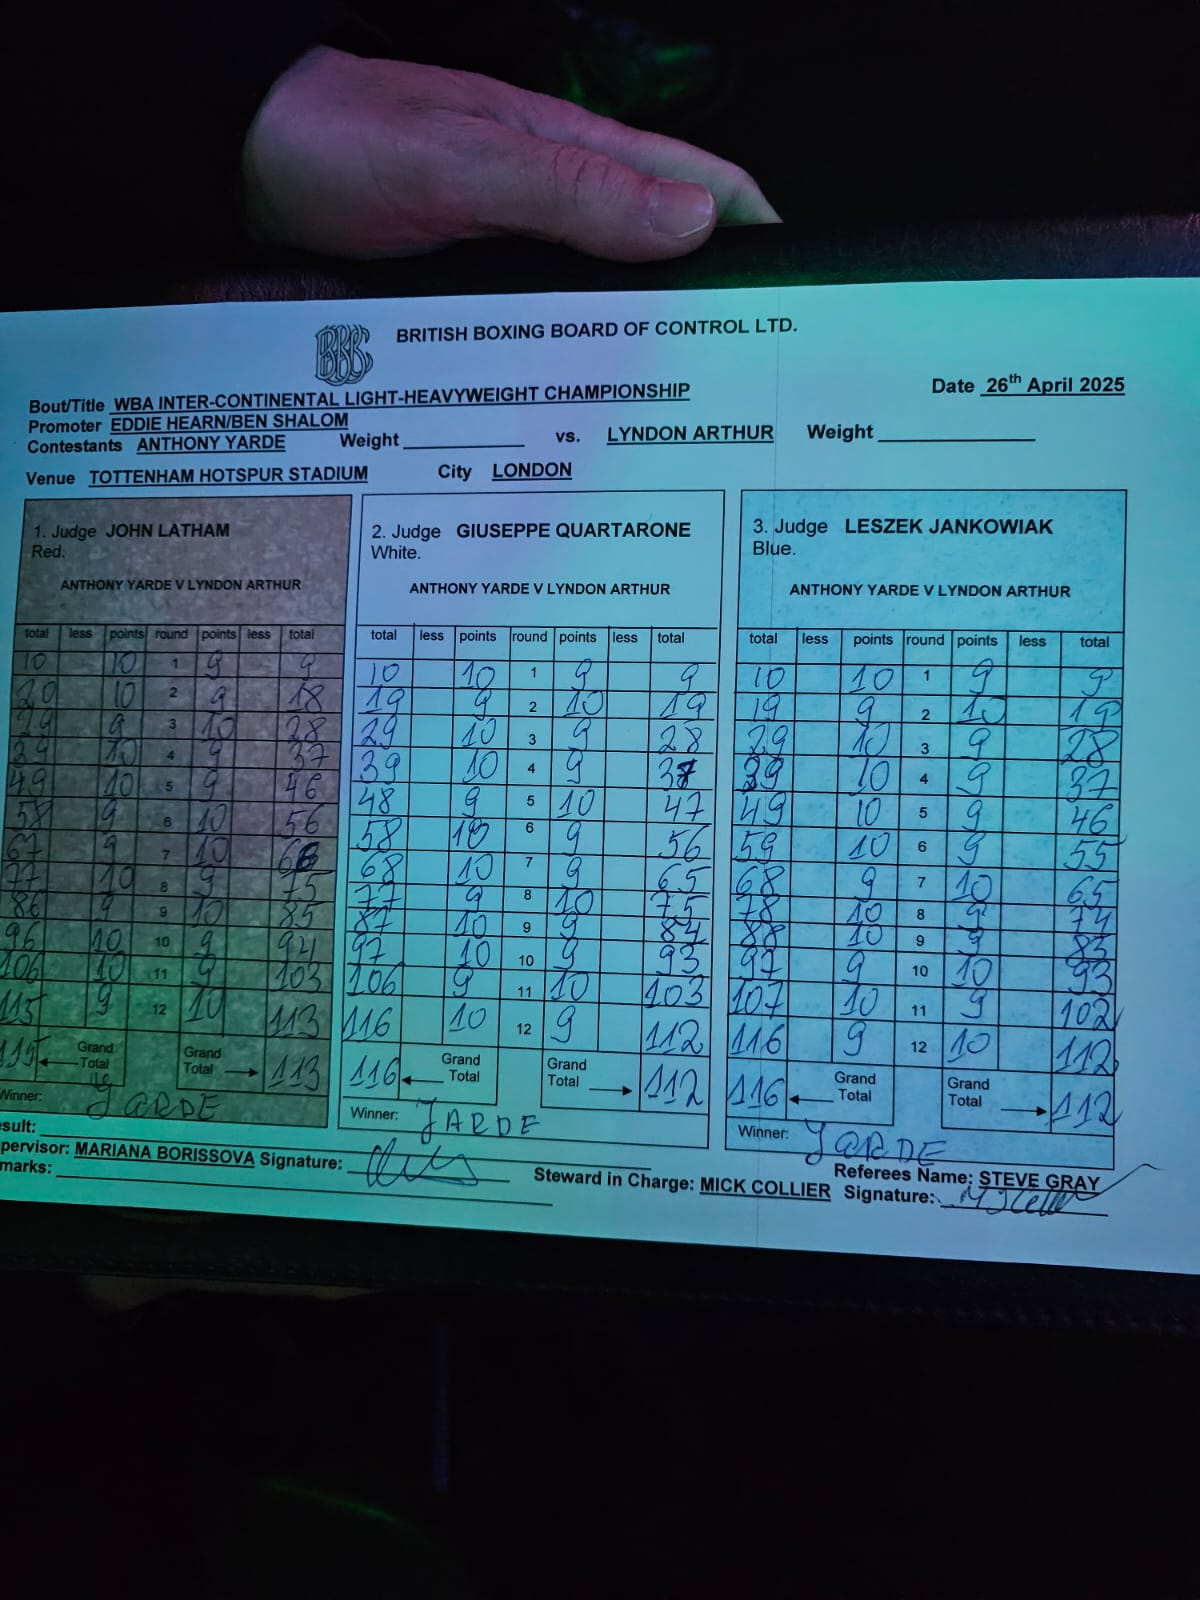 BRITISH BOXING BOARD OF CONTROL LTD.
Bout/Title WBA INTER-CONTINENTAL LIGHT-HEAVYWEIGHT CHAMPIONSHIP Date 26th April 2025
Promoter EDDIE HEARN/BEN SHALOM
Contestants ANTHONY YARDE Weight vs. LYNDON ARTHUR Weight
Venue TOTTENHAM HOTSPUR STADIUM City LONDON
1. Judge JOHN LATHAM
Red.
ANTHONY YARDE V LYNDON ARTHUR
total less points round points less total
10 10 1 9 9
20 10 2 9 18
29 9 3 10 28
39 10 4 9 37
49 10 5 9 46
58 9 6 10 56
67 9 7 10 66
77 10 8 9 75
86 9 9 10 85
96 10 10 9 94
106 10 11 9 103
115 9 12 10 113
115 Grand Total Grand Total 113
Winner: YARDE
2. Judge GIUSEPPE QUARTARONE
White.
ANTHONY YARDE V LYNDON ARTHUR
total less points round points less total
10 10 1 9 9
19 9 2 10 19
29 10 3 9 28
39 10 4 9 37
48 9 5 10 47
58 10 6 9 56
68 10 7 9 65
77 9 8 10 75
87 10 9 9 84
97 10 10 9 93
106 9 11 10 103
116 10 12 9 112
116 Grand Total Grand Total 112
Winner: YARDE
3. Judge LESZEK JANKOWIAK
Blue.
ANTHONY YARDE V LYNDON ARTHUR
total less points round points less total
10 10 1 9 9
19 9 2 10 19
29 10 3 9 28
39 10 4 9 37
49 10 5 9 46
59 10 6 9 55
68 9 7 10 65
78 10 8 9 74
88 10 9 9 83
97 9 10 10 93
107 10 11 9 102
116 9 12 10 112
116 Grand Total Grand Total 112
Winner: YARDE
sult:
pervisor: MARIANA BORISSOVA Signature: Steward in Charge: MICK COLLIER Referees Name: STEVE GRAY
marks: Signature: